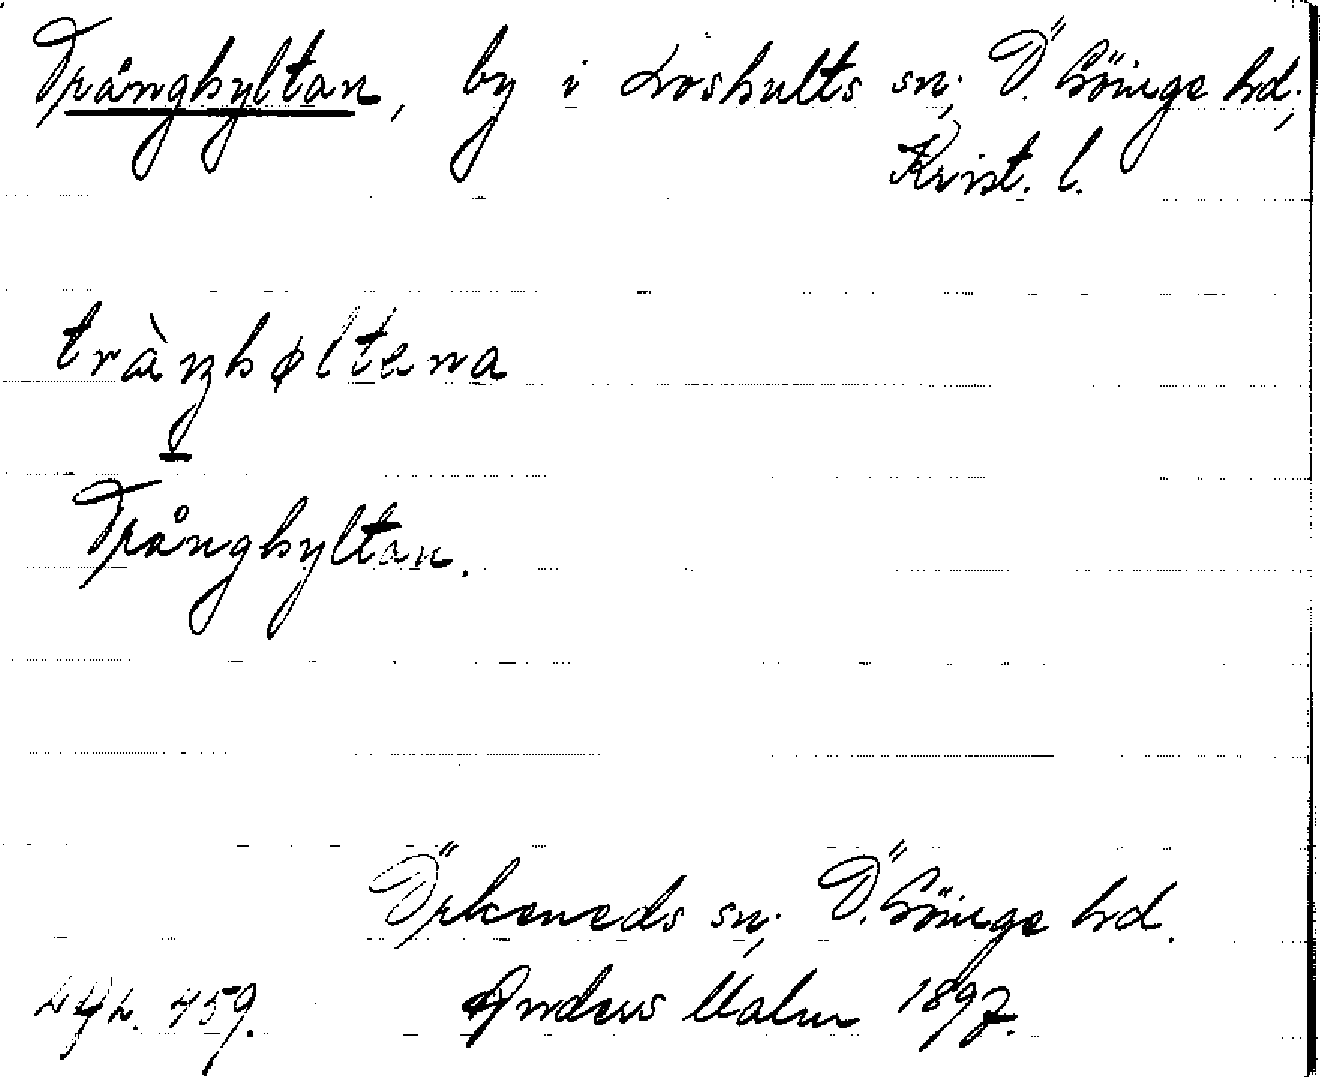 Trånghyltan, by i Loshults sn; Ö. Göinge hd;
Krist. l.
tràŋhøltena
Trånghyltan.
Örkeneds sn; Ö. Göinge hd.
459. Anders Malm 1897.